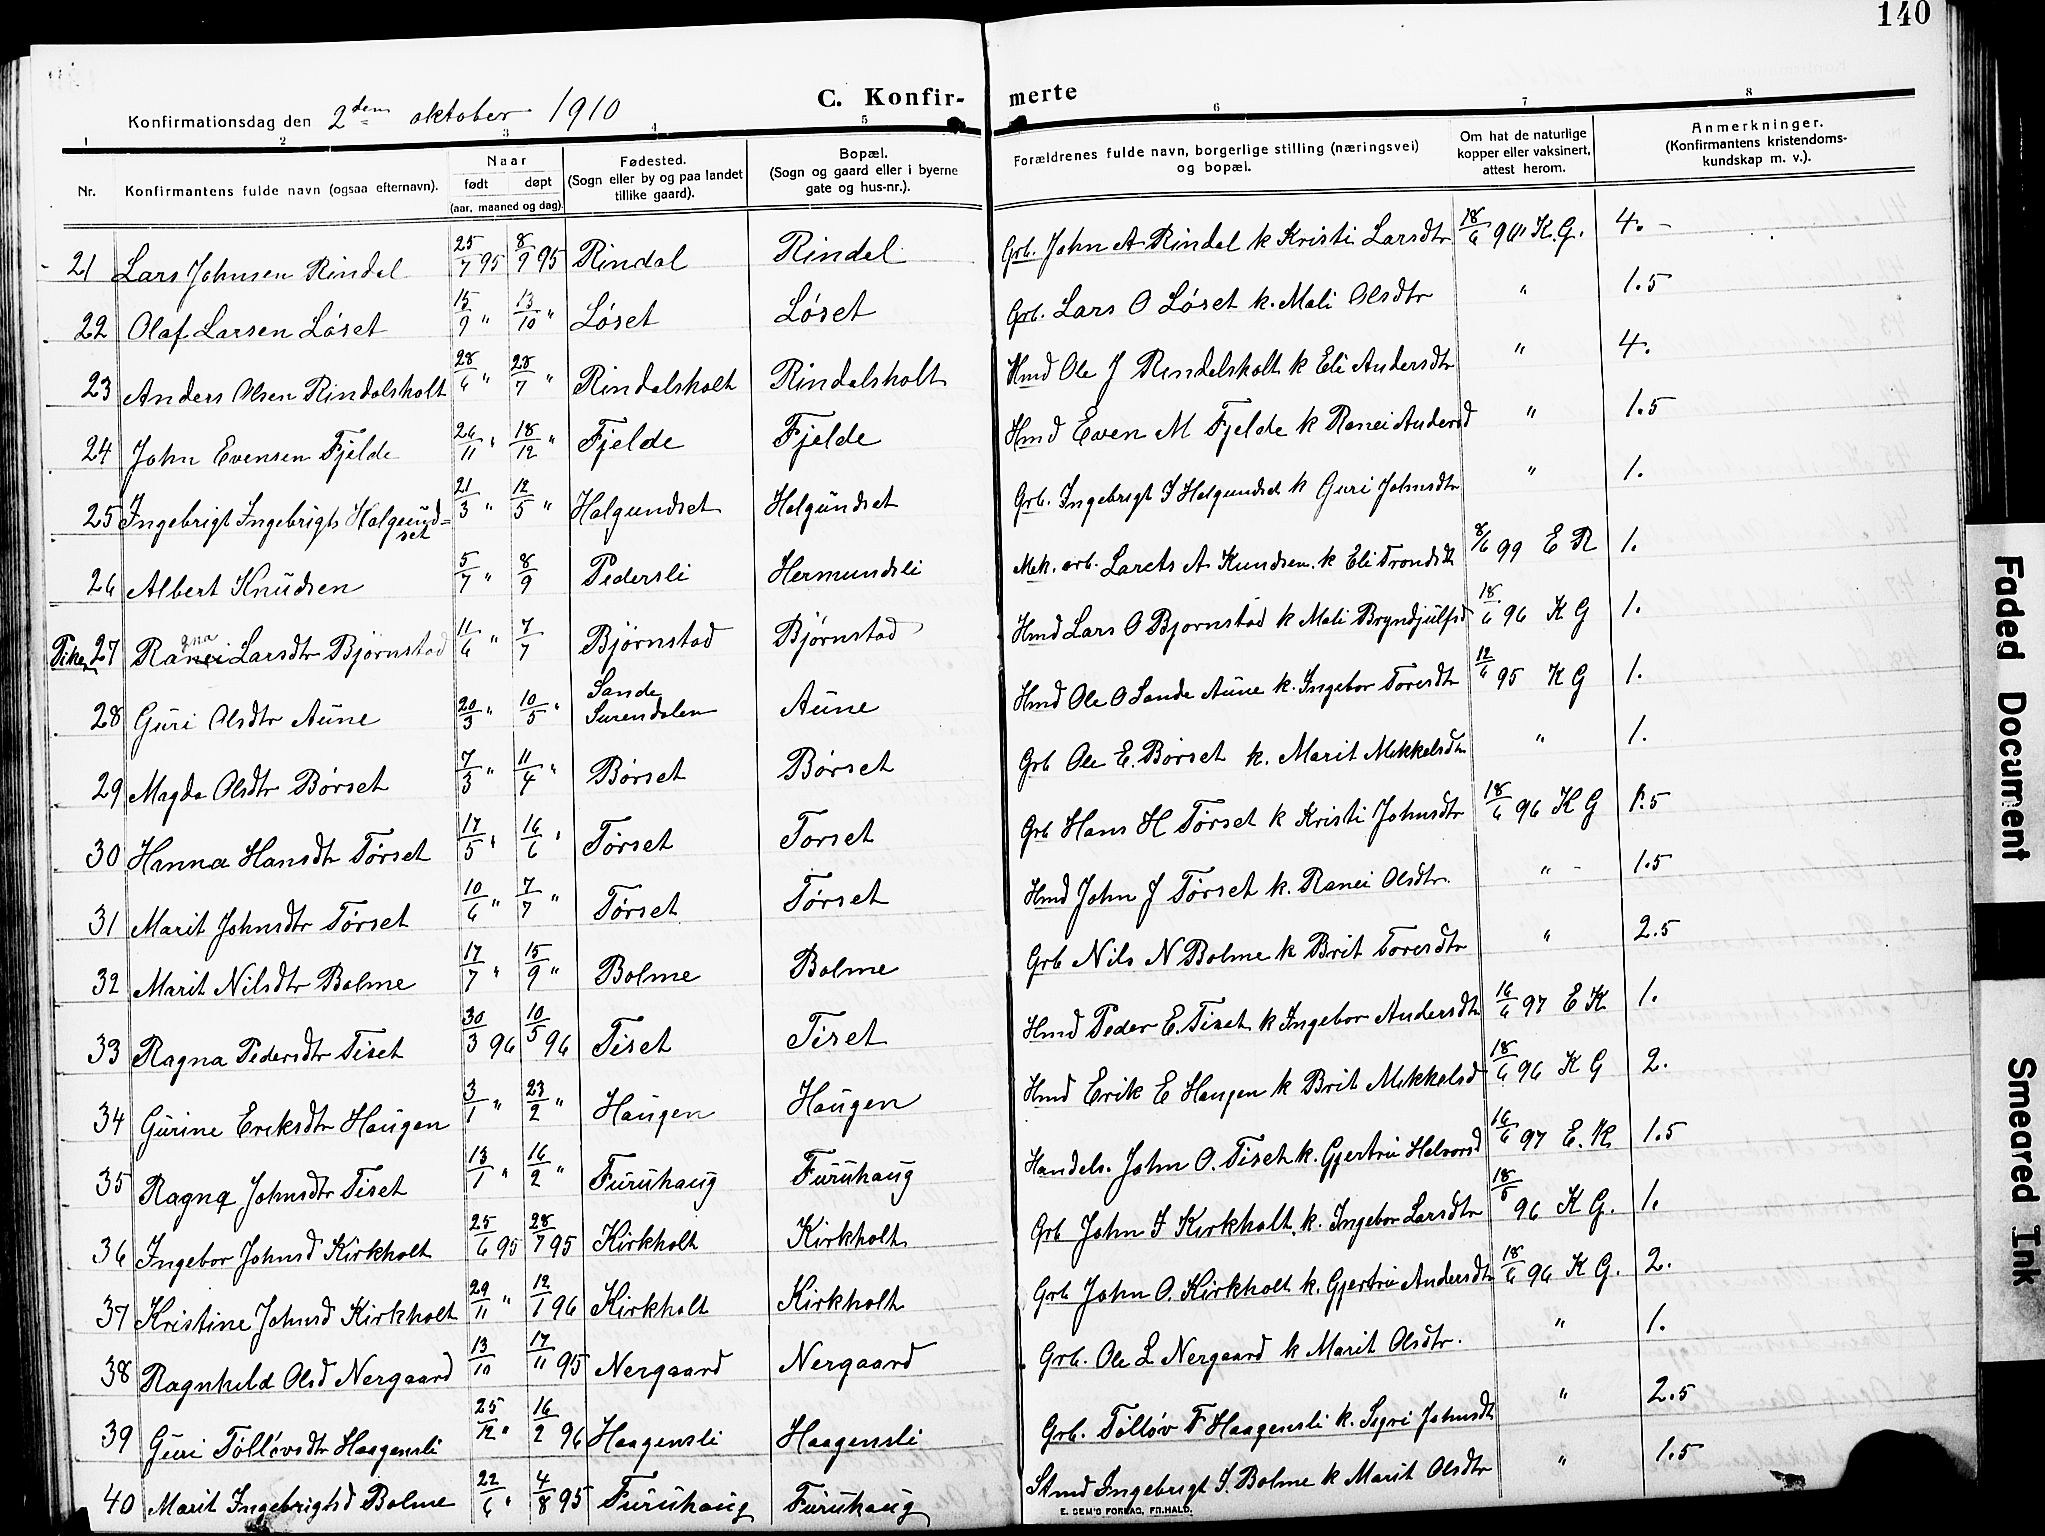 140
Konfirmationsdag den 2den oktober 1910
C. Konfir- merte
1 2 3 4 5 6 7 8
Nr. Konfirmantens fulde navn (ogsaa efternavn). Naar født døpt (aar, maaned og dag). Fødested. (Sogn eller by og paa landet tillike gaard). Bopæl. (Sogn og gaard eller i byerne gate og hus-nr.). Forældrenes fulde navn, borgerlige stilling (næringsvei) og bopæl. Om hat de naturlige kopper eller vaksinert, attest herom. Anmerkninger. (Konfirmantens kristendoms- kundskap m. v.).
21 Lars Johnsen Rindal 25/7 95 8/9 95 Rindal Rindal Grb. John A Rindal k Kristi Larsdtr 18/6 96 K.G. 4. -
22 Olaf Larsen Løset 15/9 " 13/10 " Løset Løset Grb. Lars O Løset k. Mali Olsdtr " 1.5
23 Anders Olsen Rindalsholt 28/6 " 28/7 " Rindalsholt Rindalsholt Hmd Ole J Rindalsholt k Eli Andersdtr " 4.
24 John Evensen Fjelde 26/11 " 18/12 " Fjelde Fjelde Hmd Even M Fjelde k Ranei Andersd " 1.5
25 Ingebrigt Ingebrigts Halgund=set 21/3 " 12/5 " Halgundset Halgundset Grb. Ingebrigt I Halgundset k Guri Johnsdtr " 1.
26 Albert Knudsen 5/7 " 8/9 Pedersli Hermundsli Mek. arb. Larets A Knudsen. k Eli Trondsdt 8/6 99 E R 1.
Piker 27 Ragna Larsdtr Bjørnstad 11/6 " 7/7 Bjørnstad Bjørnstad Hmd Lars O Bjørnstad k Mali Bryndjulfsd 18/6 96 K G 1.
28 Guri Olsdtr Aune 20/3 " 10/5 " Sande Surendalen Aune Hmd Ole O Sande Aune k. Ingebor Toresdtr 12/6 95 K G 1.
29 Magda Olsdtr Børset 7/3 " 11/4 " Børset Børset Grb Ole E. Børset k. Marit Mikkelsdtr " 1.
30 Hanna Hansdtr Tørset 17/5 " 16/6 " Tørset Torset Grb Hans H Tørset k Kristi Johnsdtr 18/6 96 K G 1.5
31 Marit Johnsdtr Tørset 10/6 " 7/7 " Tørset Tørset Hmd John J Tørset k. Ranei Olsdtr. " - 1.5
32 Marit Nilsdtr Bolme 17/7 " 15/9 " Bolme Bolme Grb Nils N Bolme k Brit Toresdtr " 2.5
33 Ragna Pedersdtr Tiset 30/3 96 10/5 96 Tiset Tiset Hmd Peder E. Tiset k Ingebor Andersdtr 16/6 97 E K 1.
34 Gurine Eriksdtr Haugen 3/1 " 23/2 " Haugen Haugen Hmd Erik E Haugen k Brit Mikkelsd 18/6 96 K G 2.
35 Ragna Johnsdtr Tiset 13/1 " 16/2 " Furuhaug Furuhaug Handels. John O. Tiset k. Gjertru Halvorsd 16/6 97 E. K 1.5
36 Ingebor Johnsd Kirkholt 25/6 95 28/7 95 Kirkholt Kirkholt Grb John I Kirkholt. k. Ingebor Larsdtr 18/6 96 K G. 1.
37 Kristine Johnsd Kirkholt 29/11 " 12/1 96 Kirkholt Kirkholt Grb John O. Kirkholt k. Gjertru Andersdtr 18/6 96 K G. 2.
38 Ragnhild Olsd Nergaard 13/10 17/11 95 Nergaard Nergaard Grb. Ole L Nergaard k Marit Olsdtr. " 1.
39 Guri Tølløvsdtr Haagensli 25/12 " 16/2 96 Haagensli Haagensli Grb. Tølløv F Haagensli k. Sigri Johnsdt " 2.5
40 Marit Ingebrigtsd Bolme 22/6 " 4/8 95 Furuhaug Furuhaug Stmd Ingebrigt I. Bolme k Marit Olsdtr " 1.5
E. SEM'S FORLAG, FR.HALD.
Faded Document
Smeared Ink